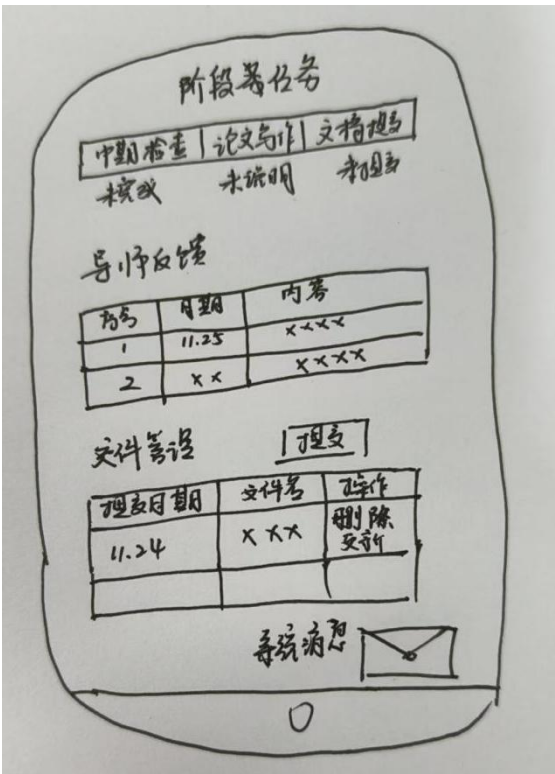 阶段若任务
中期检查 论文写作 文档提交
未完成 未说明 未提交
导师反馈
序号 日期 内容
1 11.25 xxxx
2 xx xxxx
文件管理 提交
提交日期 文件名 操作
11.24 xxx 删除
更新
系统消息